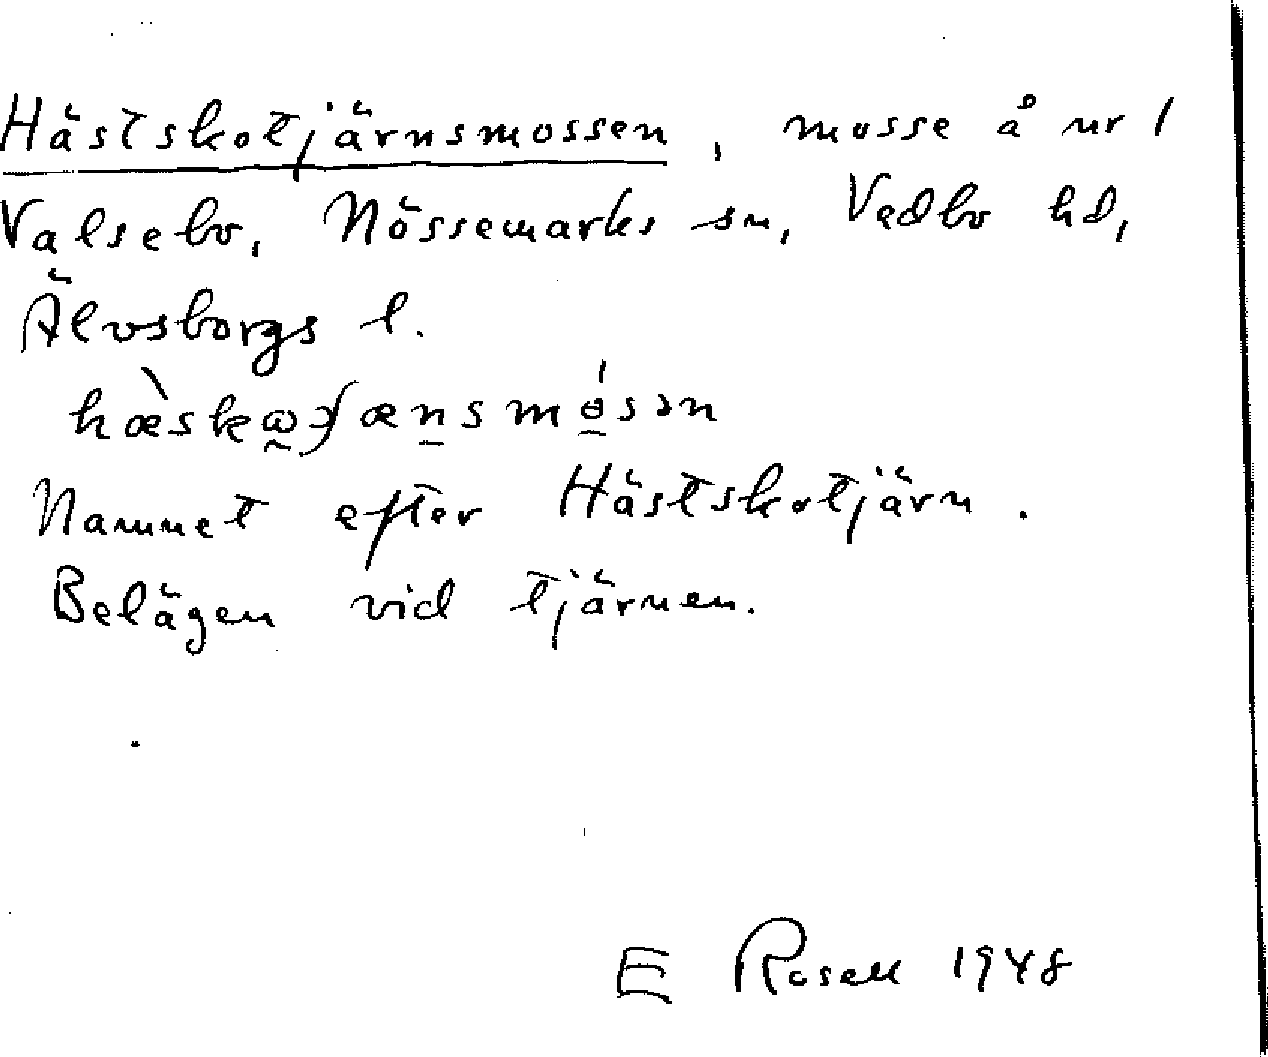 Hästskotjärnsmossen, mosse å nr 1
Valsebo, Nössemarks sn, Vedbo hd,
Älvsborgs l.
Namnet efter Hästskotjärn.
Belägen vid tjärnen.
E Rosell 1948